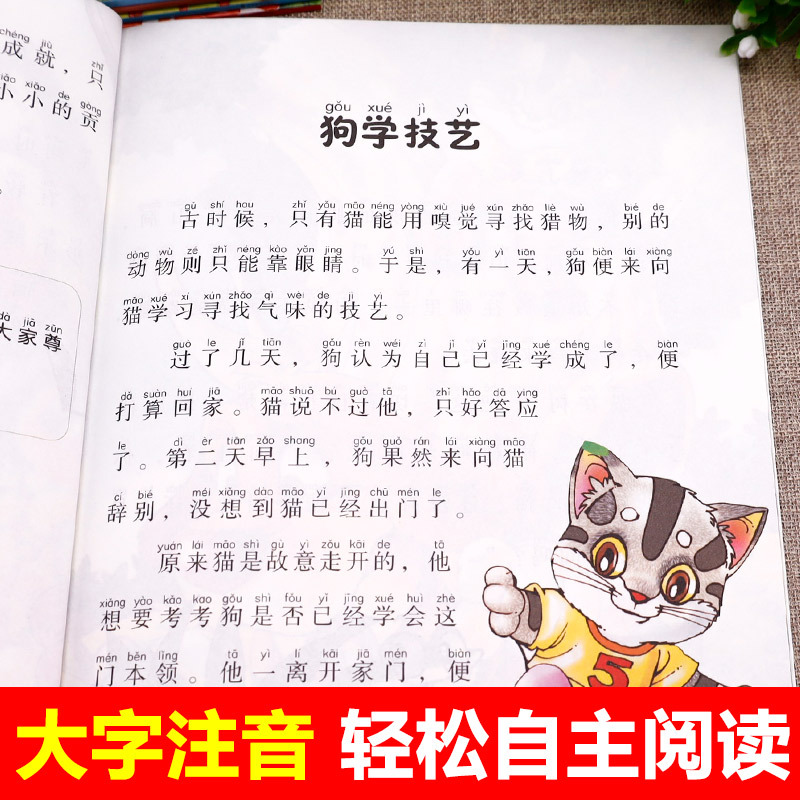 chéng jiù zhǐ
成就，只
xiǎo xiǎo de gòng
小小的贡
dà jiā zūn
大家尊
gǒu xué jì yì
狗学技艺
gǔ shí hou zhǐ yǒu māo néng yòng xiù jué xún zhǎo liè wù bié de
古时候，只有猫能用嗅觉寻找猎物，别的
dòng wù zé zhǐ néng kào yǎn jing yú shì yǒu yì tiān gǒu biàn lái xiàng
动物则只能靠眼睛。于是，有一天，狗便来向
māo xué xí xún zhǎo qì wèi de jì yì
猫学习寻找气味的技艺。
guò le jǐ tiān gǒu rèn wéi zì jǐ yǐ jīng xué chéng le biàn
过了几天，狗认为自己已经学成了，便
dǎ suàn huí jiā māo shuō bú guò tā zhǐ hǎo dā ying
打算回家。猫说不过他，只好答应
le dì èr tiān zǎo shang gǒu guǒ rán lái xiàng māo
了。第二天早上，狗果然来向猫
cí bié méi xiǎng dào māo yǐ jīng chū mén le
辞别，没想到猫已经出门了。
yuán lái māo shì gù yì zǒu kāi de tā
原来猫是故意走开的，他
xiǎng yào kǎo kao gǒu shì fǒu yǐ jīng xué huì zhè
想要考考狗是否已经学会这
mén běn lǐng tā yì lí kāi jiā mén biàn
门本领。他一离开家门，便
5
大字注音 轻松自主阅读